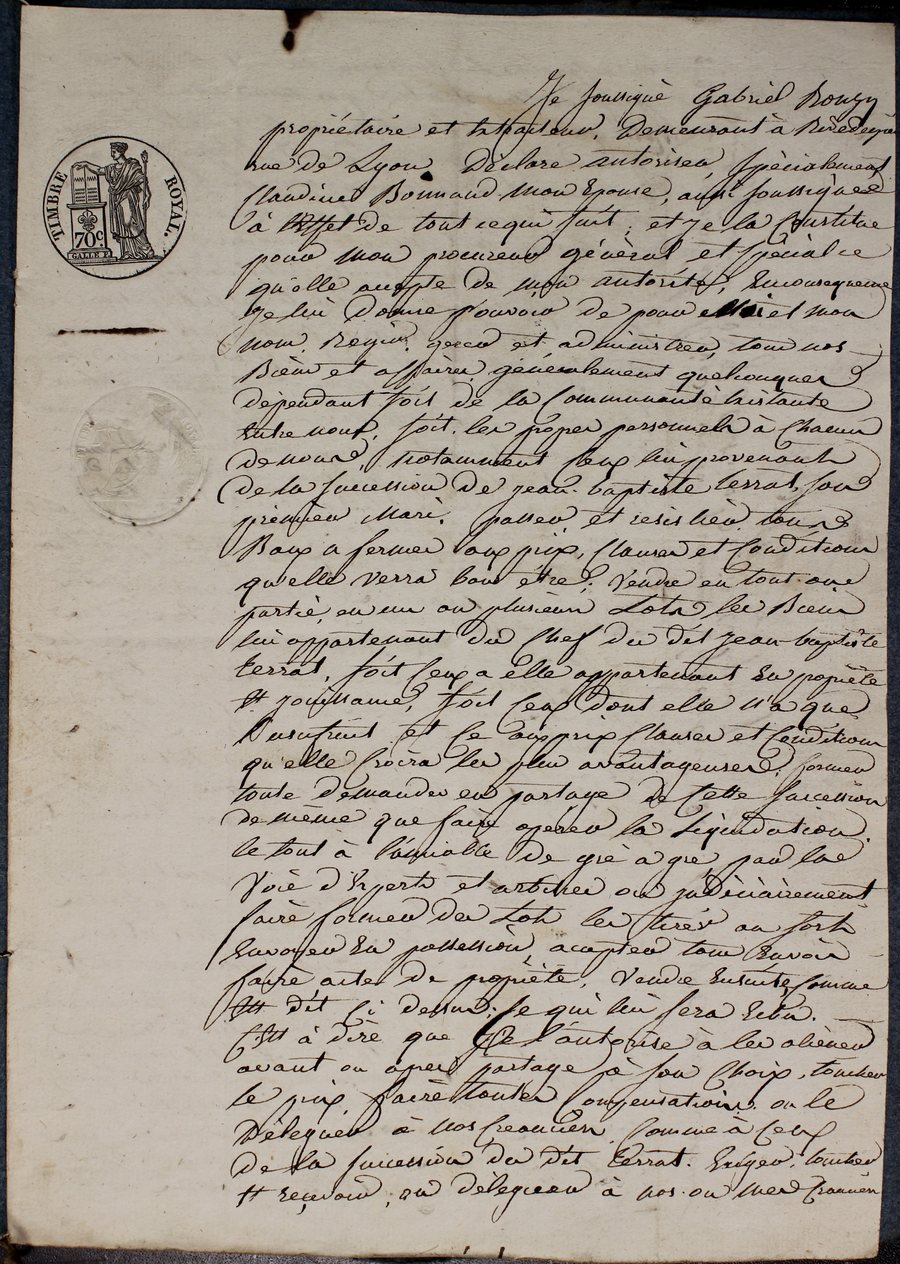 TIMBRE ROYAL.
70c.
CALLE P.
Je soussigné Gabriel Rouzy
propriétaire et traiteur, Demeurant à
rue de Lyon, Déclare autoriser, spécialement
Claudine Bonnand mon Epouse, aussi soussignée
à l'effet de tout ce qui suit; et je la Constitue
pour mon procureur général et spécial ce
qu'elle accepte de mon autorité; En consequence
Je lui Donne pouvoir de pour et mon
nom, Régir, gerer et administrer, tous nos
Biens et affaires généralement quelconques
dependant soit de la Communauté Existante
Entre nous, soit les propres personnels à Chacun
de nous, notamment Ceux lui provenant
de la succession de jean-baptiste terrat, son
premier Mari. passer et resilier tous
Baux a fermes aux prix, Clauses et Conditions
qu'elle verra bon être; Vendre en tout ou
partie, en un ou plusieurs Lots les Biens
lui appartenant du Chef du dit jean-baptiste
terrat, soit Ceux a elle appartenant En propriété
Et jouissance, soit Ceux dont elle n'a que
l'usufruit et Ce aux prix Clauses et Conditions
qu'elle Croira les plus avantageuses, former
toute demandes en partage de Cette succession
de même que faire operer la Liquidation
le tout à l'amiable de gré a gré par la
Voie d'Experts et arbitres ou judiciairement
faire former des Lots les tirer au sort
Envoyer En possession, accepter tous Envois
faire actes de propriété, Vendre Ensuite, Comme
Est dit Ci dessus, Ce qui lui sera Echu.
C'est à dire que Je l'autorise à les aliener
avant ou après partage à son Choix, toucher
le prix faire toutes Compensations ou le
Déleguer à nos Creanciers Comme à Ceux
de la succession du dit terrat. Exiger, toucher
Et reçevoir, ou déleguer à nos ou mes Creanciers